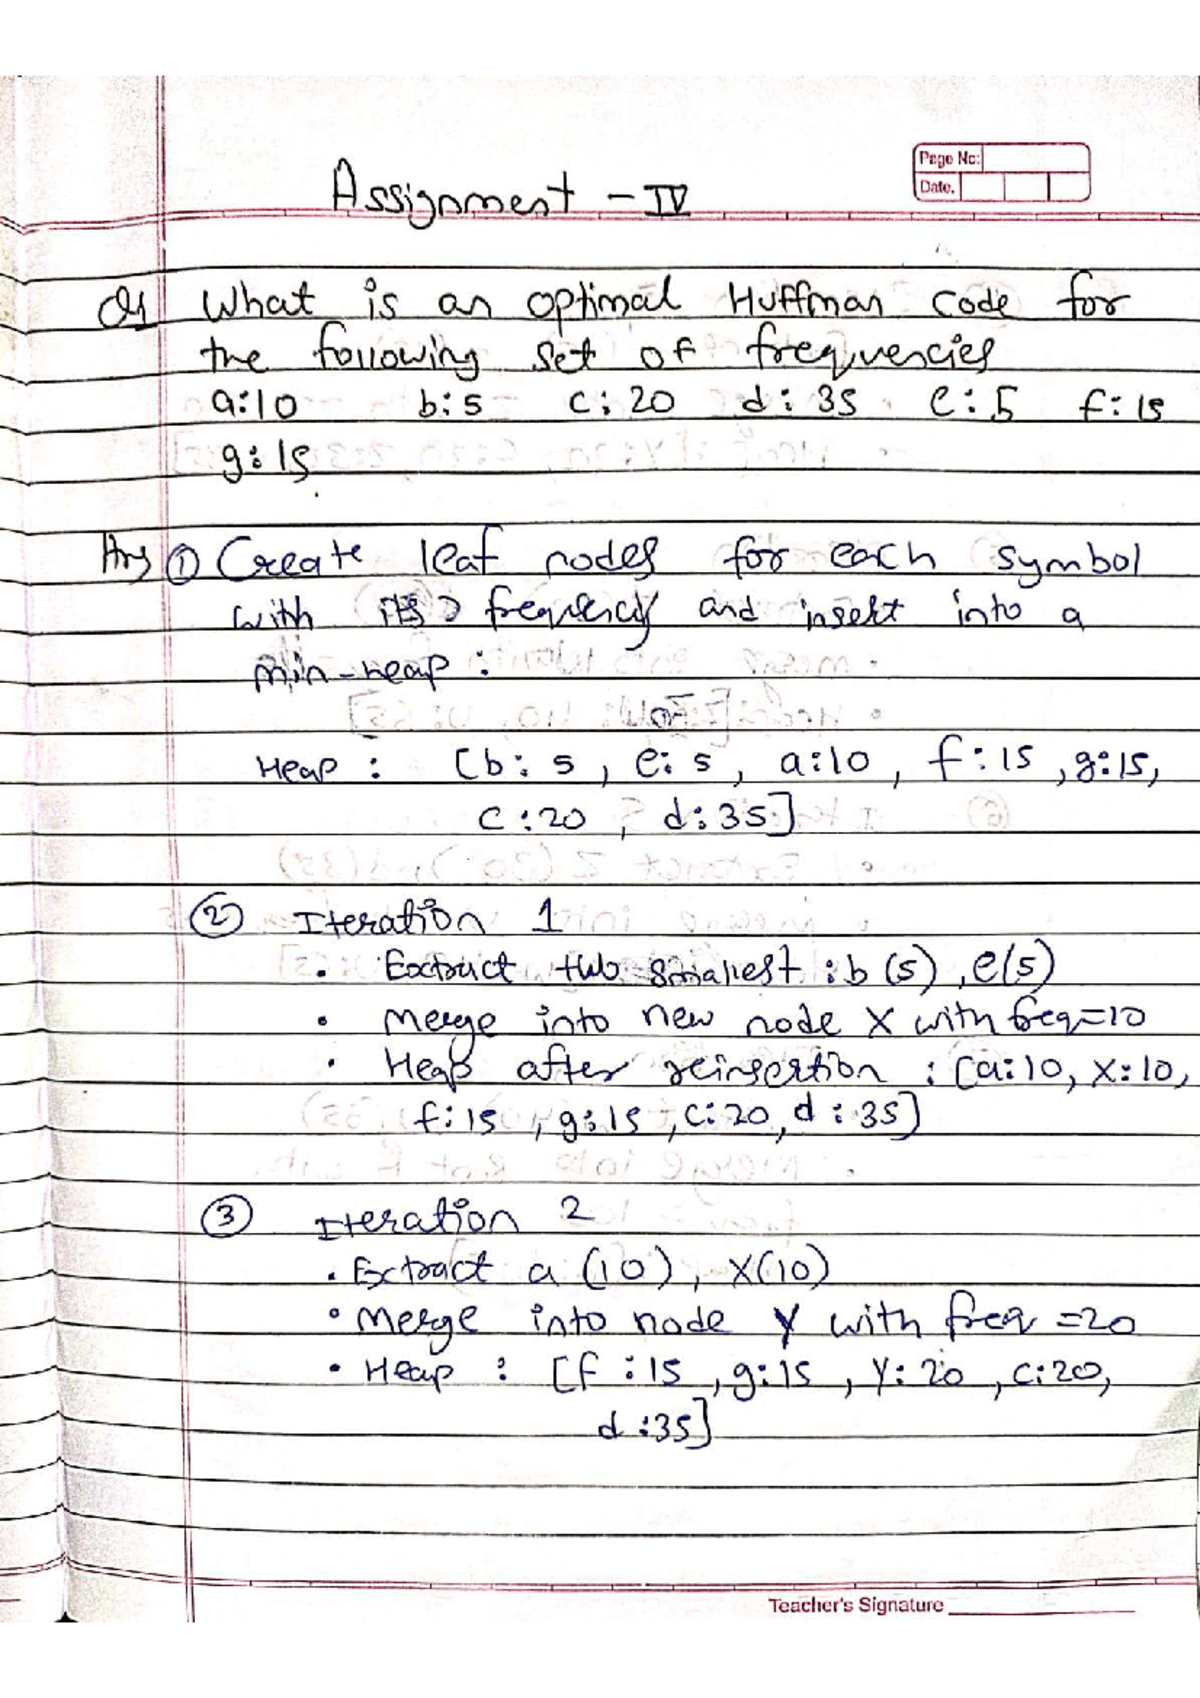 Page No:
Date.
Assignment - IV
Q1 What is an optimal Huffman code for
the following set of frequencies
a:10 b:5 c:20 d:35 e:5 f:15
g:15
Ans ① Create leaf nodes for each symbol
with its frequency and insert into a
min-heap :
Heap : [b:5, e:5, a:10, f:15, g:15,
c:20, d:35]
② Iteration 1
• Extract two smallest : b(5), e(5)
• Merge into new node X with freq=10
• Heap after reinsertion : [a:10, X:10,
f:15, g:15, c:20, d:35]
③ Iteration 2
• Extract a (10), X(10)
• Merge into node Y with freq =20
• Heap : [f:15, g:15, Y:20, c:20,
d:35]
Teacher's Signature